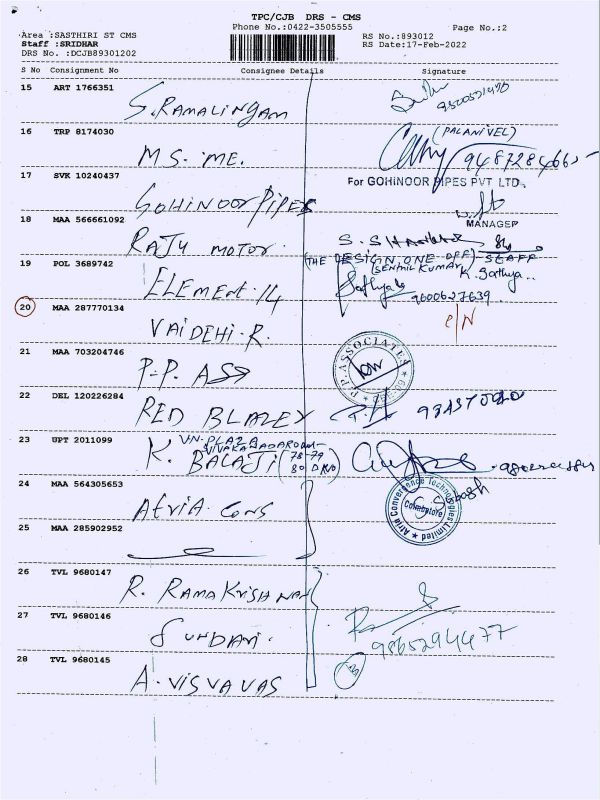 TPC/CJB DRS - CMS
Phone No.:0422-3505555
Page No.:2
Area :SASTHIRI ST CMS
Staff :SRIDHAR
DRS No. :DCJB89301202
RS No.:893012
RS Date:17-Feb-2022
S No Consignment No Consignee Details Signature
15 ART 1766351
S.RAMALINGAM
16 TRP 8174030
M S. ME.
(PALANIVEL)
17 SVK 10240437
GOHINOOR PIPES
For GOHINOOR PIPES PVT LTD.
MANAGER
18 MAA 566661092
RAJU MOTOR.
(THE DESIGN ONE OFF) STAFF
19 POL 3689742
ELEMENT.14
(SENTHIL KUMAR)
K. Sathya..
Sathya
9600627639
20 MAA 287770134
VAIDEHI.R.
21 MAA 703204746
P.P. ASS
P.P. ASSOCIATES
22 DEL 120226284
RED BLAZEY
23 UPT 2011099
K. BALAJI
VN. PLAZA
24 MAA 564305653
Atria. Cons
Atria Convergence Technologies Limited
Coimbatore
25 MAA 285902952
26 TVL 9680147
R. RAMAKRISHNAN
27 TVL 9680146
SUNDARI.
9865294477
28 TVL 9680145
A. VISVAVAS